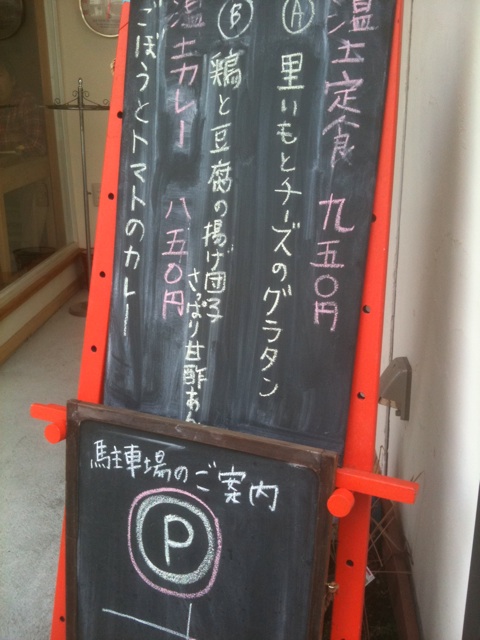 温土定食 九五〇円
Ⓐ 里いもとチーズのグラタン
Ⓑ 鶏と豆腐の揚げ団子
さっぱり甘酢あん
温土カレー 八五〇円
ごぼうとトマトのカレー
駐車場のご案内
P